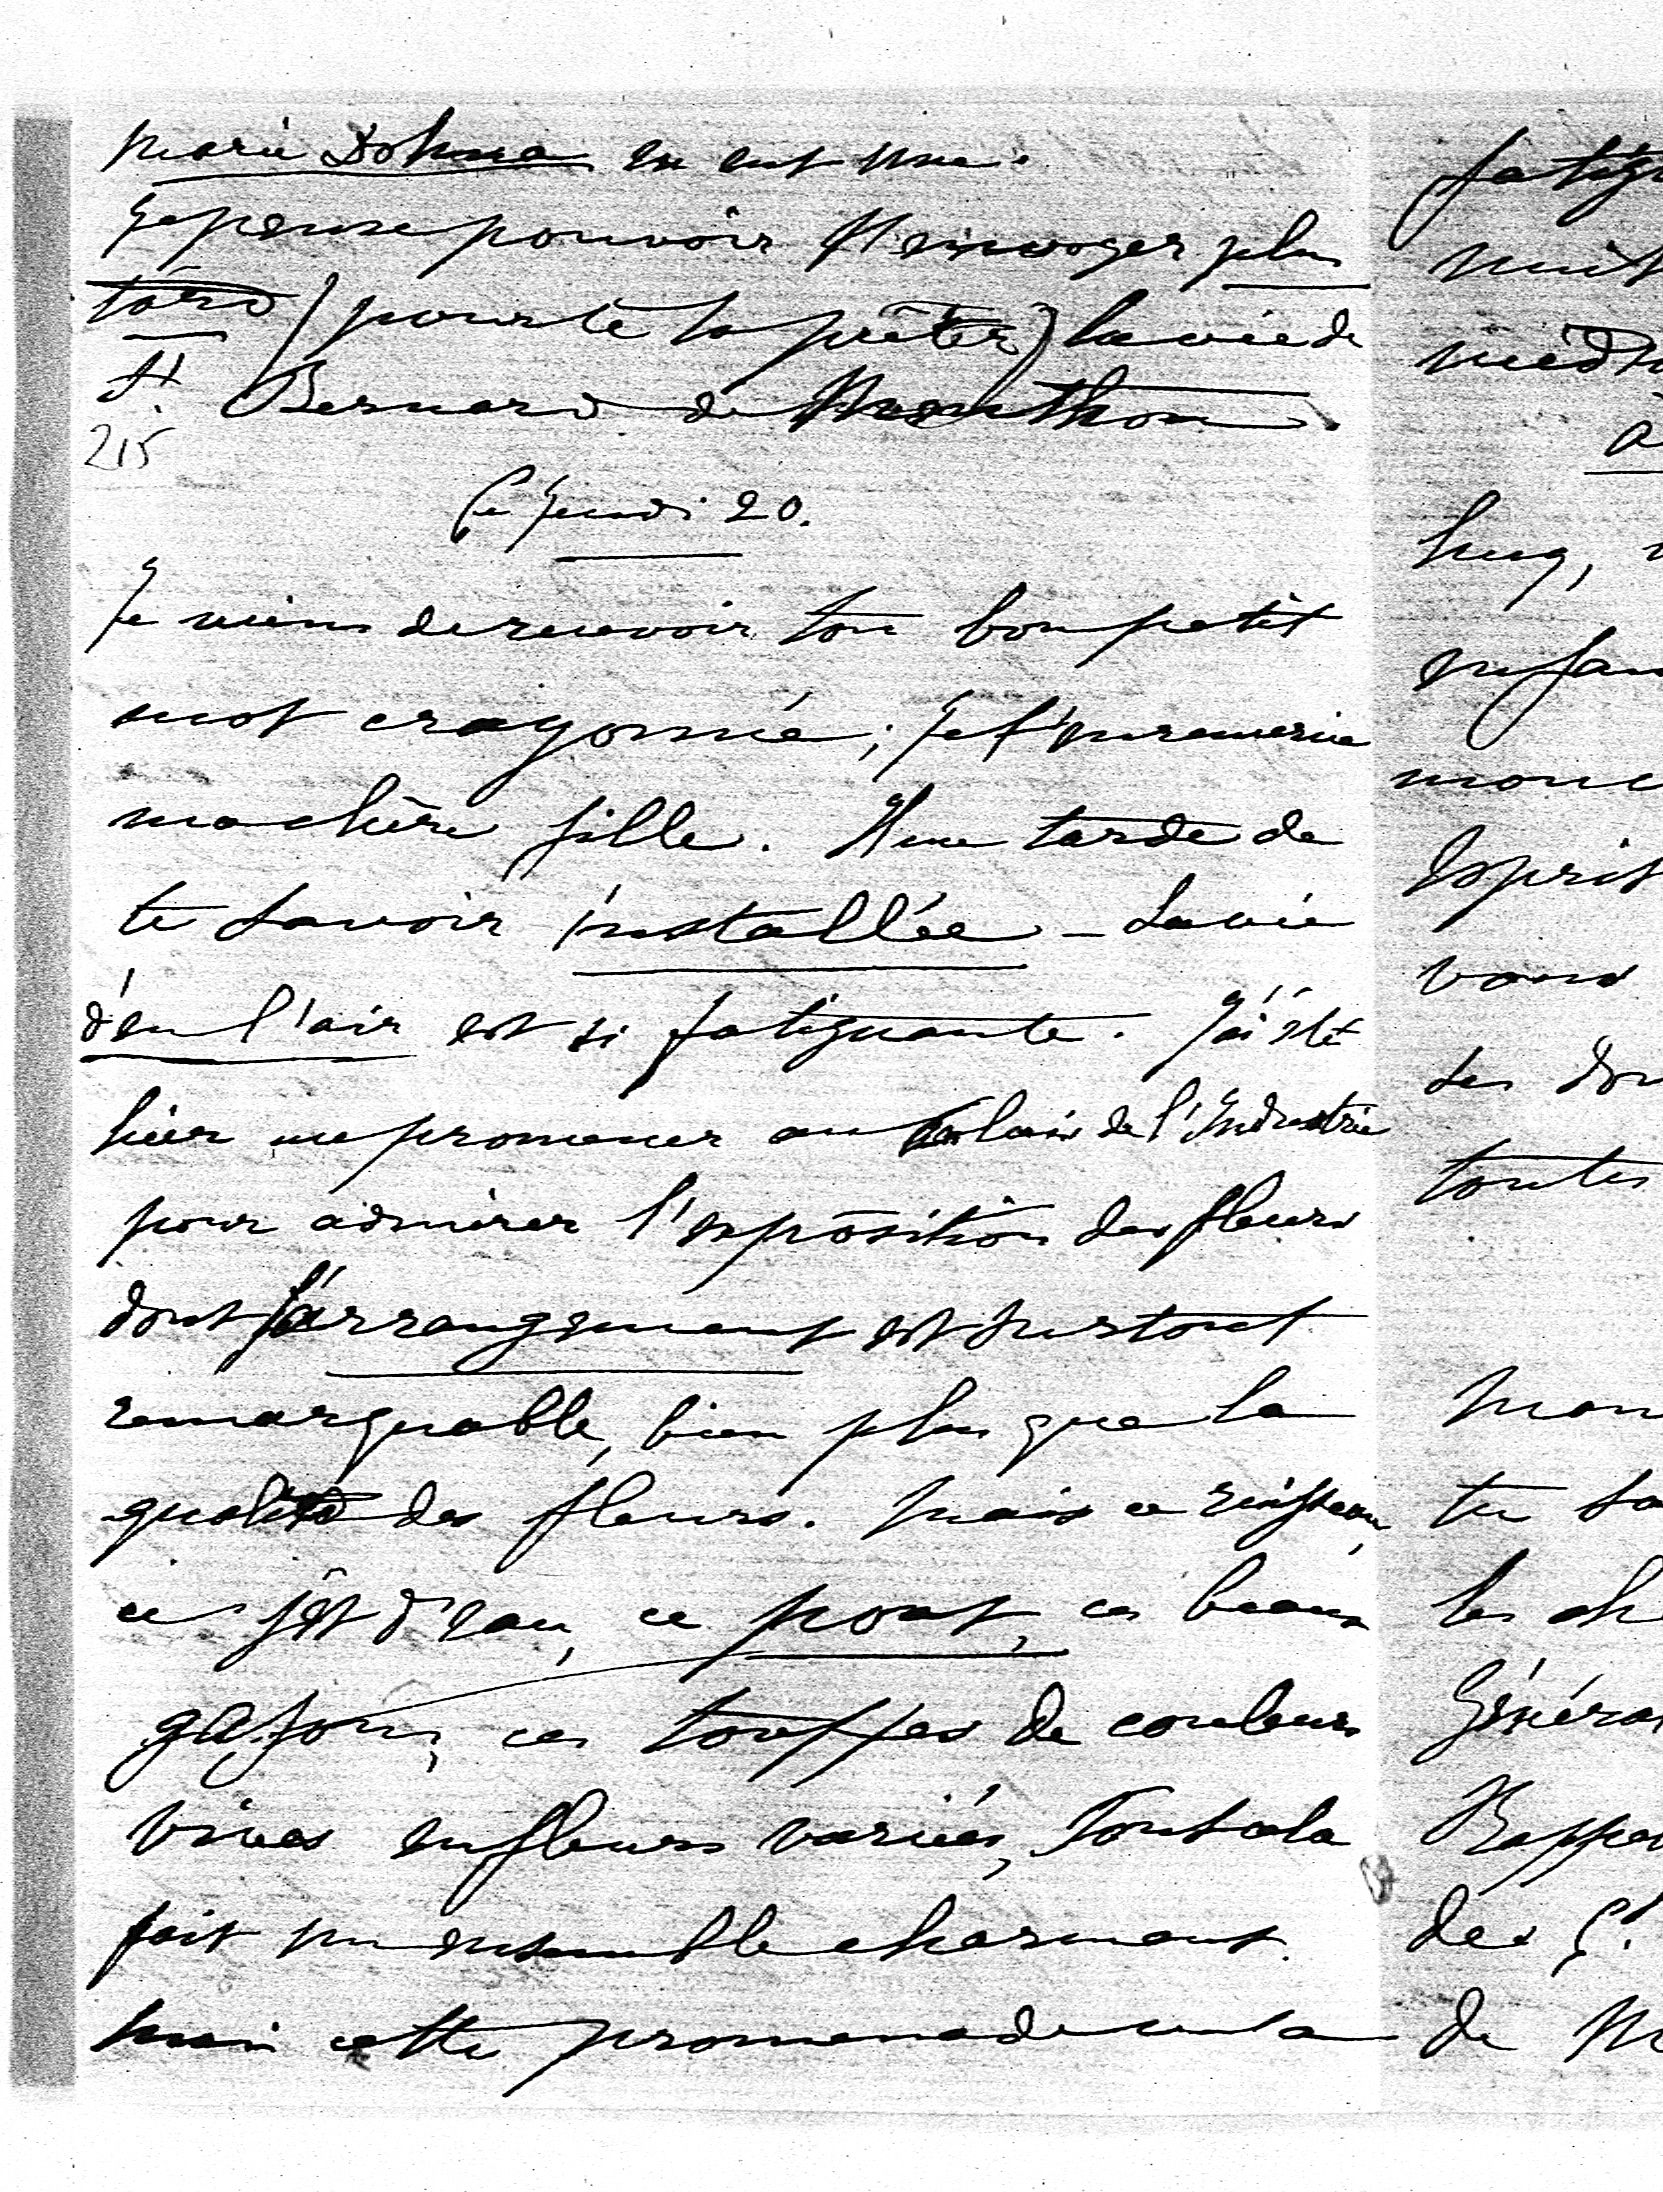 Marie Dohna en eut une.
Je pense pouvoir t'envoyer plus
tard (pour te la prêter) la vie de
St. Bernard de Menthon.
215
Ce jeudi 20.
Je viens de recevoir ton bon petit
mot crayonné; je t'en remercie
ma chère fille. Il me tarde de
te savoir installée - La vie
d'en l'air est si fatiguante. J'ai été
hier me promener au Palais de l'Industrie
pour admirer l'exposition des fleurs
dont l'arrangement est surtout
remarquable, bien plus que la
qualité des fleurs. Mais ce ruisseau,
ce jèt d'eau, ce pont, ces beaux
gazons, ces touffes de couleurs
vives en fleurs variées, Tout cela
fait un ensemble charmant.
Mais cette promenade m'a
fatig
nuit
à
enfan
mon c
Esprit
vous
ses don
toutes
Mon
tu sa
les ch
Généra
Rappe
des
de M